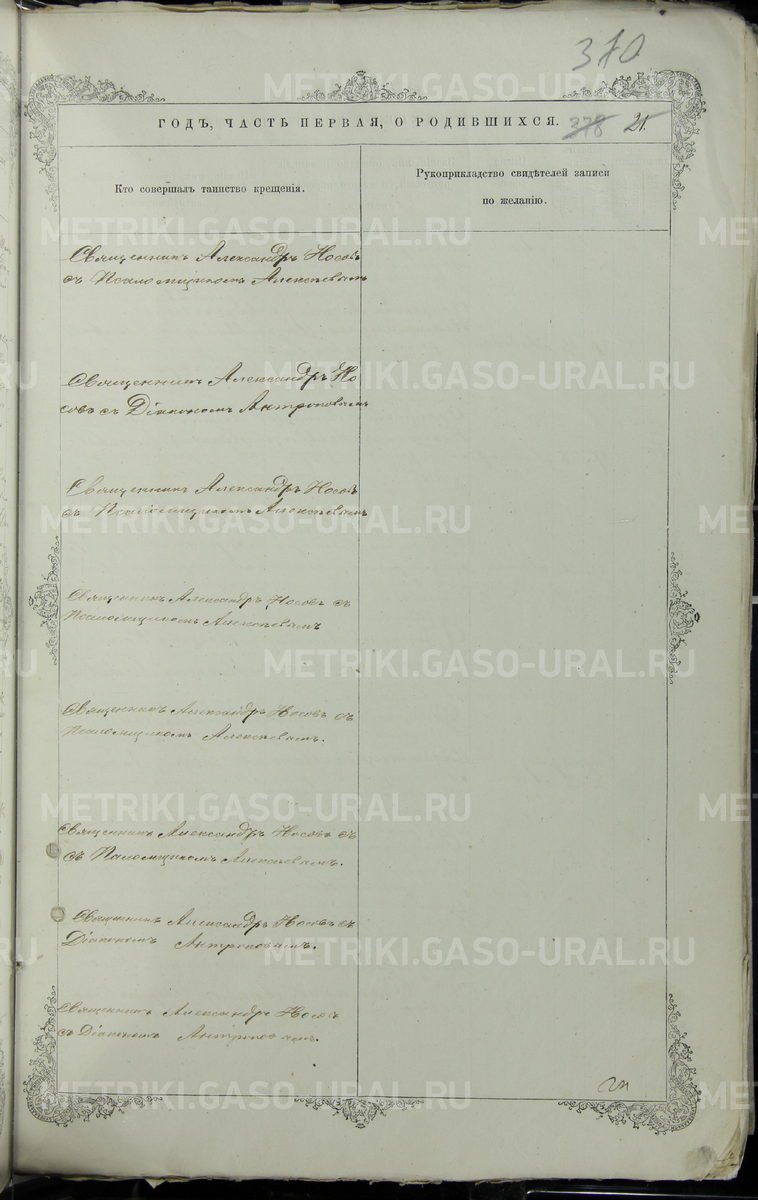 370
ГОДЪ, ЧАСТЬ ПЕРВАЯ, О РОДИВШИХСЯ. 378 21.
Кто совершалъ таинство крещенія.
Рукоприкладство свидѣтелей записи
по желанію.
Священникъ Александръ Носовъ
съ Псаломщикомъ Алексѣевымъ
Священникъ Александръ Но
совъ съ Діакономъ Антроповымъ
Священникъ Александръ Носовъ
съ Псаломщикомъ Алексѣевымъ
Священникъ Александръ Носовъ съ
Псаломщикомъ Алексѣевымъ
Священникъ Александръ Носовъ съ
Псаломщикомъ Алексѣевымъ.
Священникъ Александръ Носовъ съ
съ Псаломщикомъ Алексѣевымъ.
Священникъ Александръ Носовъ съ
Діакономъ Антроповымъ.
Священникъ Александръ Носовъ
съ Діакономъ Антроповымъ.
METRIKI.GASO-URAL.RU